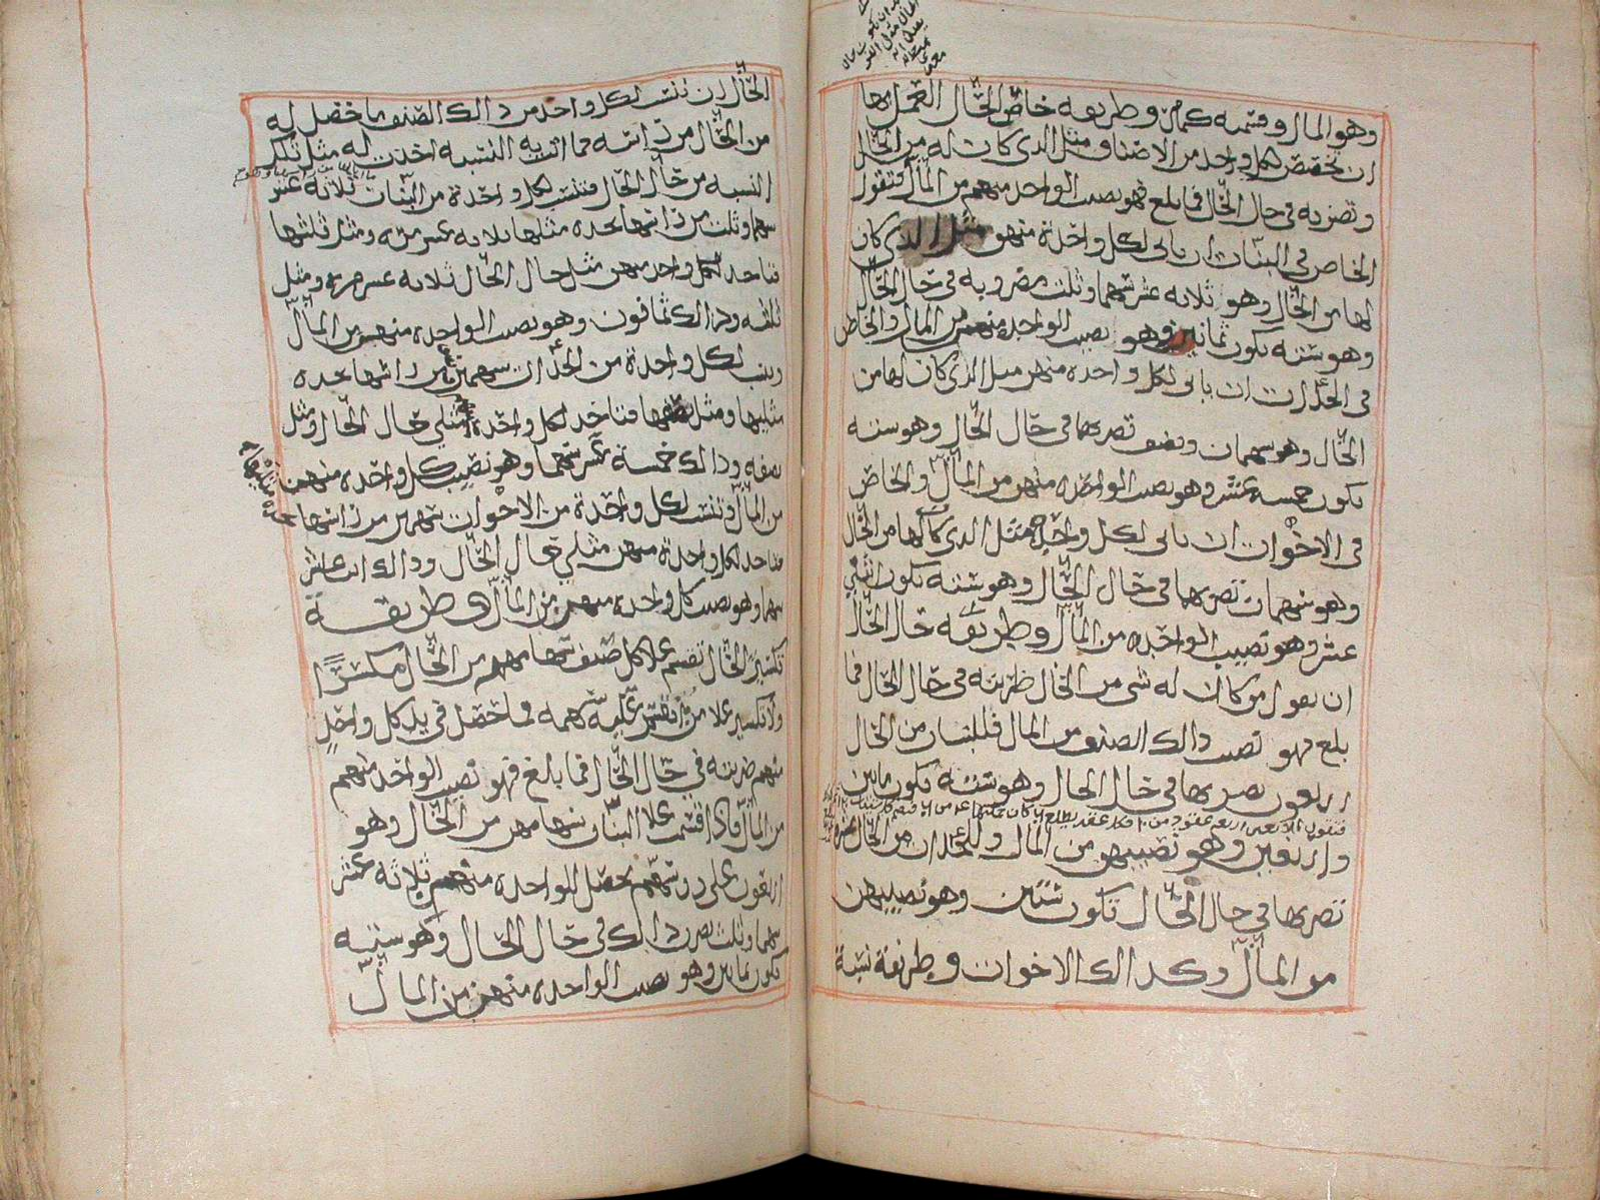 وهو المال وقسمه كمامر وطريقه خاص الحال العمل بها
ان تخصص لكل واحد من الاصناف مثل الذى كان له من الحال
وتضربه فى حال الحال فما بلغ فهو نصيب الواحد منهم من المال فتقول
الخاص فى البنات ان ياتى لكل واحدة منهن مثل الذى كان
لها من الحال وهو ثلاثه عشر سهما وثلث مضروبه فى حال الحال
وهو سته يكون ثمانين وهو نصيب الواحده منهن من المال والخاص
فى الجدات ان ياتى لكل واحده منهن مثل الذى كان لها من
الحال وهو سهمان ونصف تضربهما فى حال الحال وهو سته
يكون خمسه عشر وهو نصيب الواحده منهن من المال والخاص
فى الاخوات ان ياتى لكل واحدة مثل الذى كان لها من الحال
وهو سهمان تضربهما فى حال الحال وهو سته يكون اثنى
عشر وهو نصيب الواحده من المال وطريقه حال الحال
ان تقول من كان له شى من الحال ضربته فى حال الحال فما
بلغ فهو نصيب ذالك الصنف من المال فللبنات من الحال
اربعون تضربها فى حال الحال وهو سته يكون مايتين
واربعين وهو نصيبهن من المال وللجدات من الحال عشره
تضربها فى حال الحال تكون ستين وهو نصيبهن
من المال وكذالك الاخوات وطريقة نسبة
الحال ان تنسب لكل واحد من ذالك الصنف ما حصل له
من الحال من راسه فما اتت به النسبه اخذت له مثل تلك
النسبه من حال الحال فتنسب لكل واحدة من البنات ثلاثه عشر
سهما وثلث من راسها تجده مثلها ثلاثه عشر مره ومثل ثلثها
فتاخذ لكل واحد منهن مثل حال الحال ثلاثه عشر مره ومثل
ثلثه وذالك ثمانون وهو نصيب الواحده منهن من المال
وتنسب لكل واحدة من الجدات سهمين ونصف من راسها تجده
مثليها ومثل نصفها فتاخذ لكل واحدة مثلى حال الحال ومثل
نصفه وذالك خمسة عشر سهما وهو نصيب كل واحده منهن
من المال وتنسب لكل واحدة من الاخوات سهمين من راسها
فتاخذ لكل واحدة منهن مثلي حال الحال وذالك اثنا عشر
سهما وهو نصيب كل واحده منهن من المال وطريقة
تكسير الحال تقسم علا كل صنف سهامهم من الحال مكسرًا
ولا تكسير علا من تقسم عليه سهمه فما حصل في يد كل واحدٍ
منهم ضربته في حال الحال فما بلغ فهو نصيب الواحد منهم
من المال فاذا قسمت علا البنات سهامهن من الحال وهو
اربعون على روسهم يحصل للواحده منهن ثلاثه عشر
سهما وثلث تضرب ذالك فى حال الحال وهو سته
يكون ثمانين وهو نصيب الواحده منهن من المال